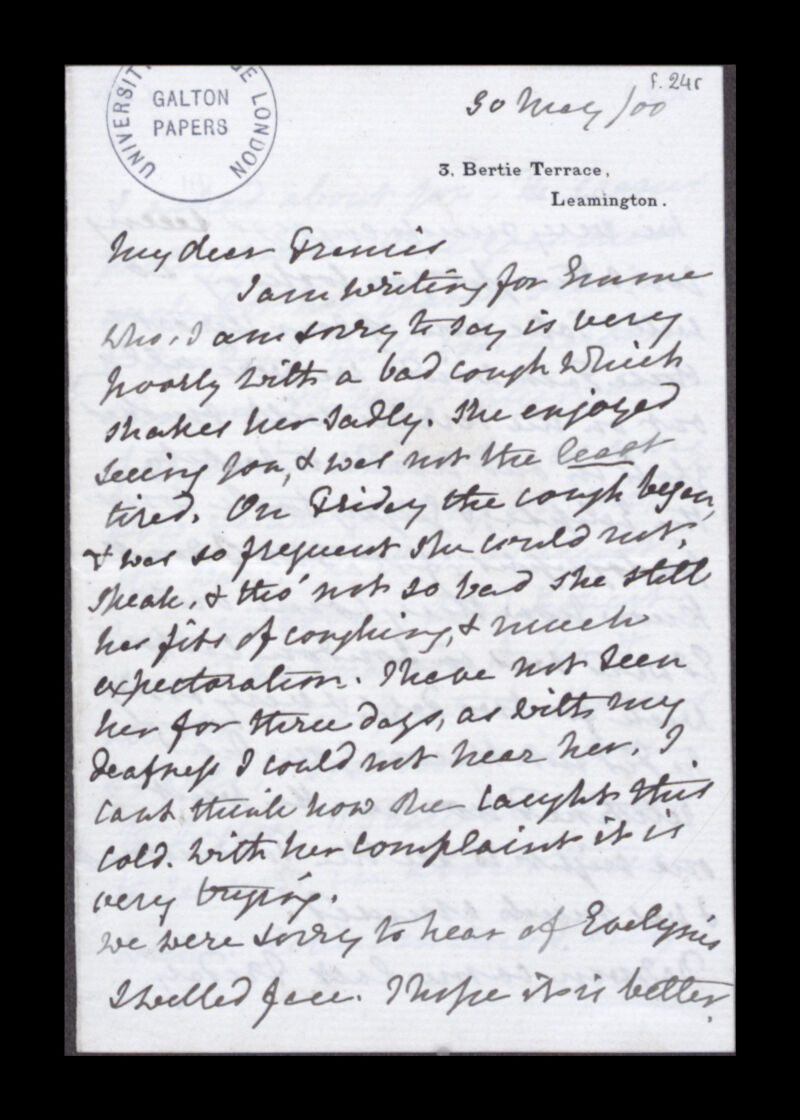 f. 24r
UNIVERSITY COLLEGE LONDON
GALTON
PAPERS
30 May /00
3, Bertie Terrace,
Leamington.
My dear Francis
I am writing for Emma
who, I am sorry to say is very
poorly with a bad cough which
shakes her sadly. She enjoyed
seeing you, & was not the least
tired. On Friday the cough began,
& was so frequent she could not
speak, & tho' not so bad she still
has fits of coughing, & much
expectoration. I have not seen
her for three days, as with my
deafness I could not hear her. I
cant think how she caught this
cold. With her complaint it is
very trying.
We were sorry to hear of Evelyn's
swelled face. I hope it is better.